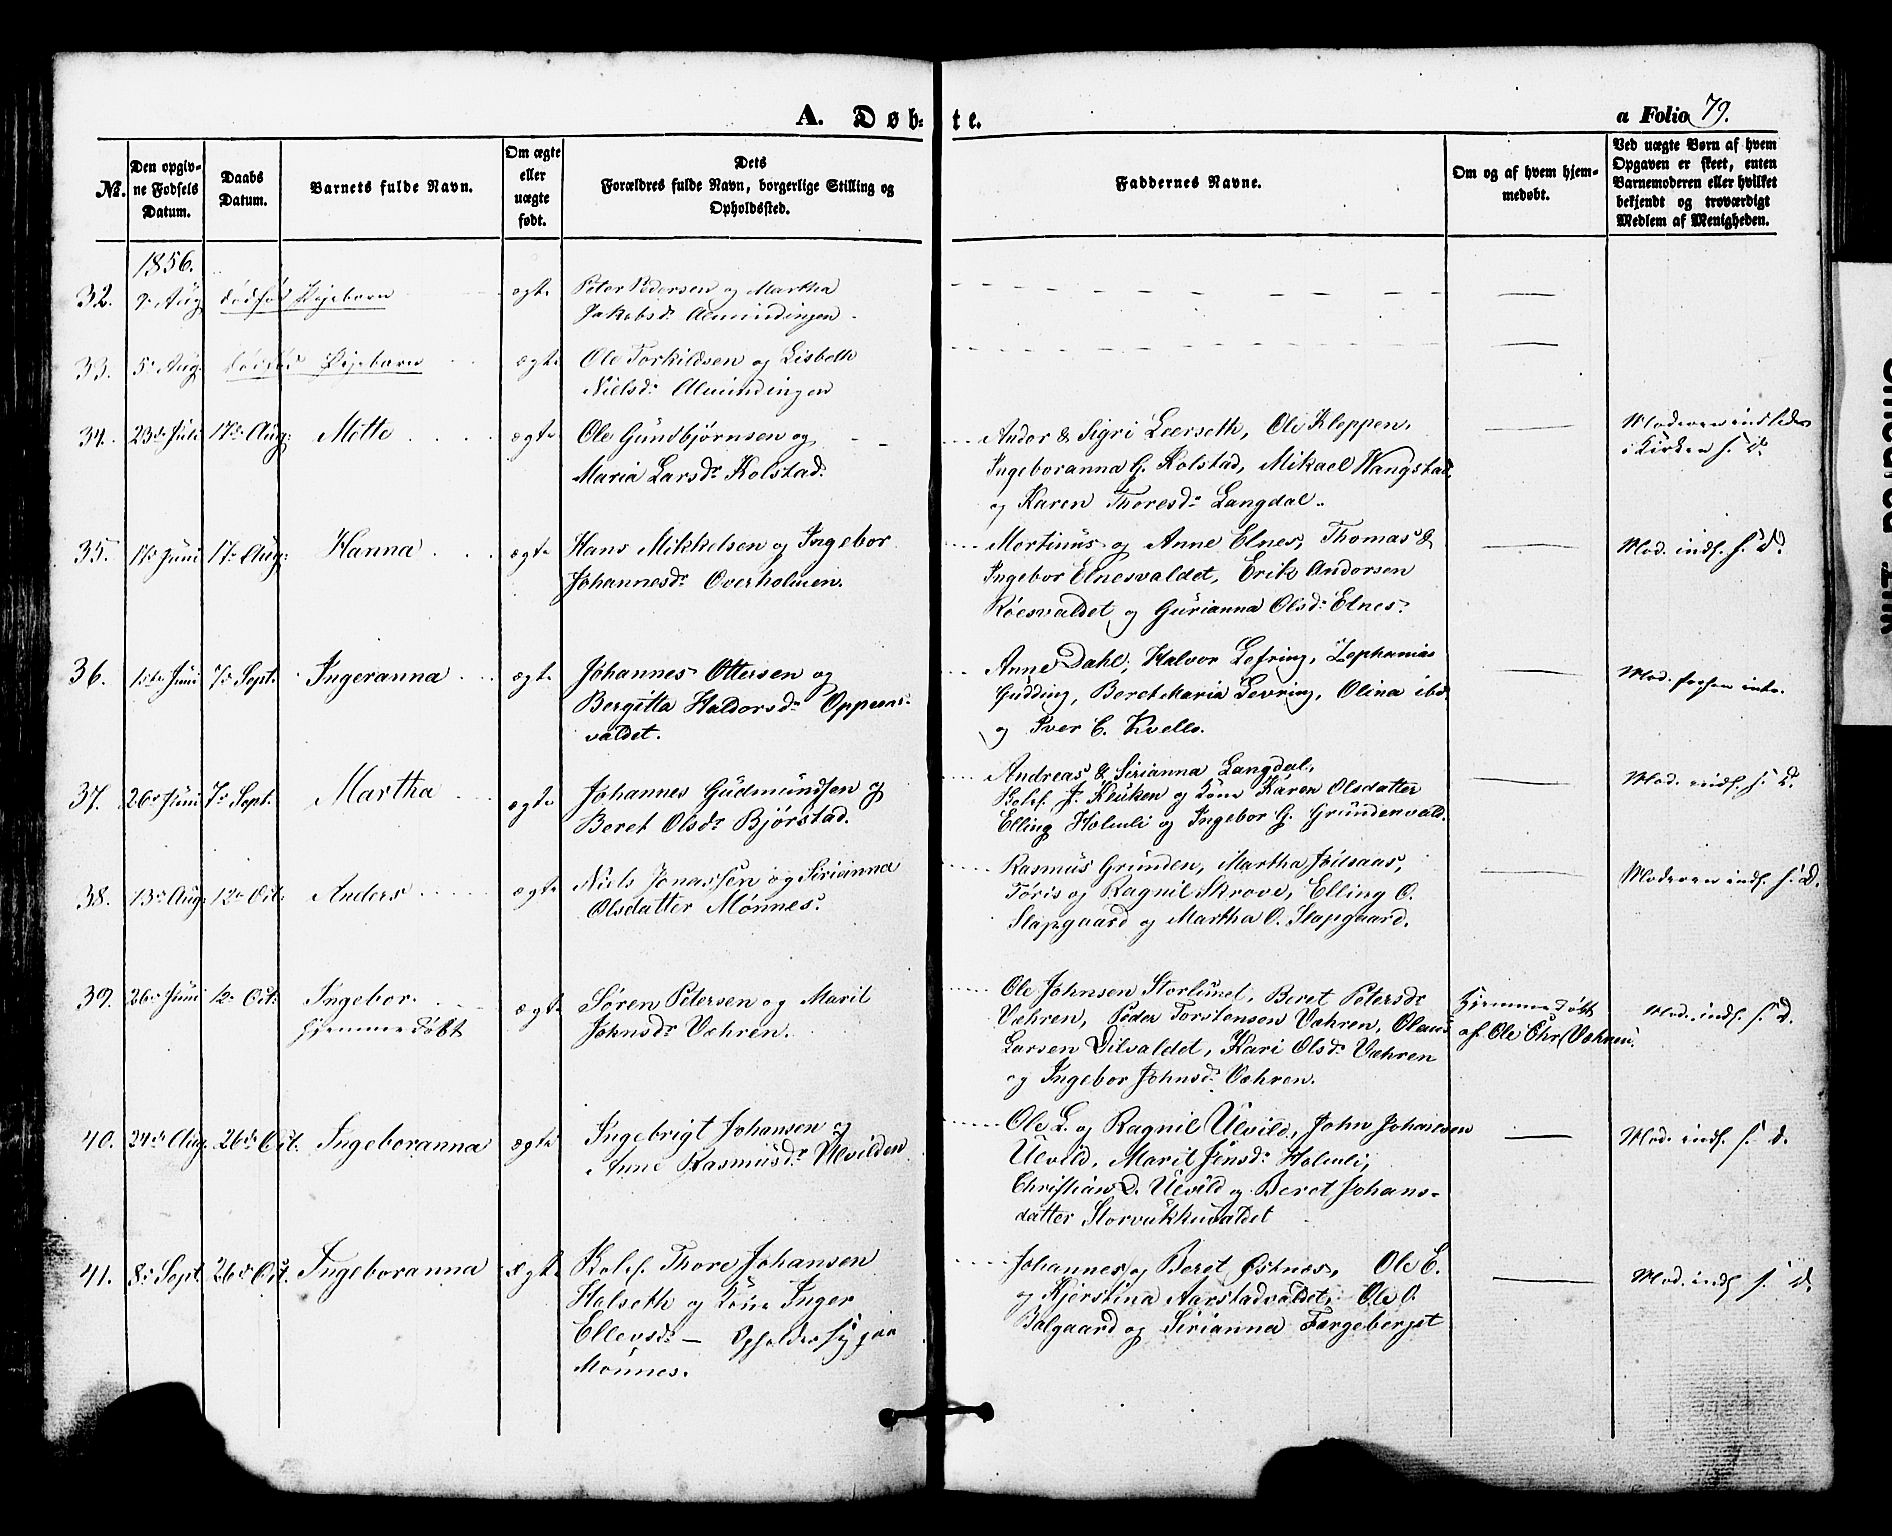 A. Døb-
te.
a Folio 79.
No.
Den opgiv-
ne Fødsels
Datum.
Daabs
Datum.
Barnets fulde Navn.
Om ægte
eller
uægte
født.
Dets
Forældres fulde Navn, borgerlige Stilling og
Opholdssted.
Faddernes Navne.
Om og af hvem hjem-
medøbt.
Ved uægte Børn af hvem
Opgaven er skeet, enten
Barnemoderen eller hvilket
bekjendt og troværdigt
Medlem af Menigheden.
1856.
32. Aug dødfød Pigebarn ægte Peter Pedersen og Martha
Jakobsd: Almindingen
33. 5. Aug. dødfød ægte Ole Torkildsen og Lisbeth
Nielsd: Almindingen
34. 23de Juli 17de Aug: Mette ægte Ole Gundbjørnsen og
Maria Larsd: Kolstad.
Andor & Sigri Leerseth, Ole Kleppen,
Ingeboranna G. Kolstad, Mikael Vangstad
og Karen Thoresd: Langdal.
Moderen indledes
i Kirken s. D.
35. 17 Juni 17 Aug: Hanna ægte Hans Mikkelsen og Ingebor
Johannesd: Overholmen.
Mortinus og Anne Elnes, Thomas &
Ingebor Elnesvaldet, Erik Andorsen
Røesvaldet og Gurianna Olsd: Elnes.
Mod. indl. s. D.
36. Juni 7 Sept. Ingeranna ægte Johannes Ottersen og
Bergitta Haldorsd:
valdet.
Anne Dahl, Halvor Lefring, Zephanias
Gudding, Beret Maria Levring, Olina ibd
og Iver C. Kvello.
Mod.
37. 26 Juni 7 Sept. Martha ægte Johannes Gudmundsen og
Beret Olsd: Bjørstad.
Andreas & Sirianna Langdal,
J. Kluken og Kone Karen Olsdatter
Elling Holmli og Ingebor G. Grundenvald.
Mod. indl. s. D.
38. 13 Aug. 12 Oct. Anders ægte Niels Jonassen og Sirianna
Olsdatter Mønnes.
Rasmus Grunden, Martha
Toris og Ragnil Skrove, Elling O.
Slapgaard og Martha O. Slapgaard.
Moderen indl. s. D.
39. 26 Juni 12 Oct. Ingebor.
hjemmedøbt
ægte Søren Petersen og Marit
Johnsd: Væhren.
Ole Johnsen Storlunet, Beret Petersd:
Væhren, Peder Torstensen Væhren, Olaus
Larsen Dilvaldet, Kari Olsd: Væhren
og Ingebor Johnsd: Væhren.
Hjemmedøbt
af Ole Chr. Væhren.
Mod. indl. s. D.
40. 24de Aug. 26de Oct. Ingeboranna ægte Ingebrigt Johansen og
Anne Rasmusd: Ulvilden
Ole L. og Ragnil Ulvild, John Johansen
Ulvild, Marit Jensd: Holmli,
Christian D. Ulvild og Beret Johans-
datter Storvukkuvaldet
Mod. indl. s. D.
41. 8 Sept. 26de Oct. Ingeboranna ægte Thore Johansen
Halseth og Kone Inger
Ellevsd: — Opholder sig paa
Mønnes.
Johannes og Beret Østnæs, Ole E.
og Kjerstina Aarstadvaldet, Ole O.
Balgaard og Sirianna Færgeberget
Mod. indl. s. D.